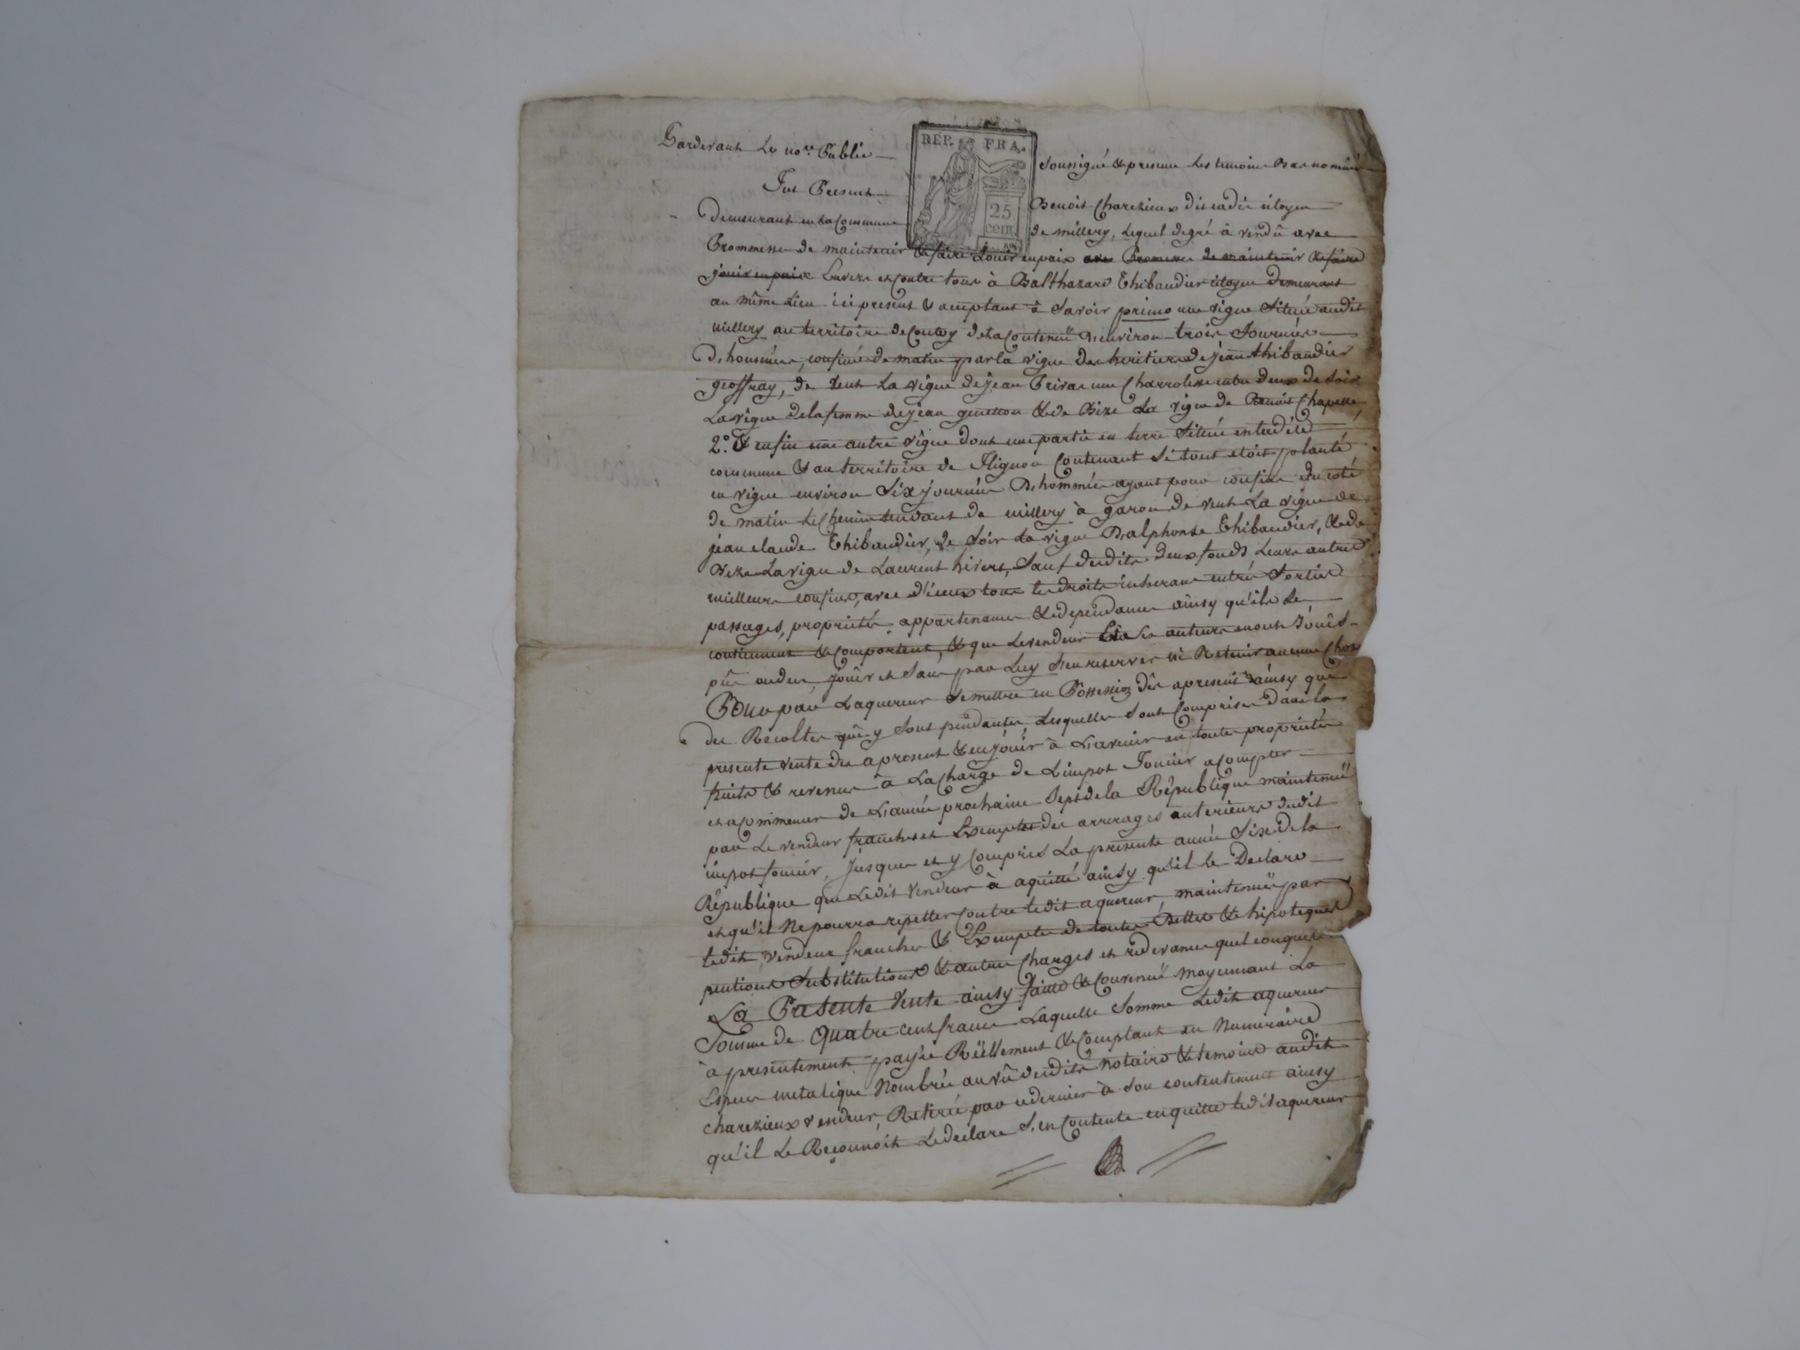 Pardevant Le no.re Public
REP. FRA.
25 cent
Soussigné & presence Les temoins Bas nommés
Fut Present
Benoit Charezieux dit cadet citoyen
Demeurant en La Commune
de millery, Lequel de gré à vendû avec
Promesse de maintenir & faire Jouir en paix avec Promesse de maintenir & faire
jouir en paix Envers et Contre tous à Balthazard Thibaudier citoyen Demeurant
au même Lieu ici present & acceptant à Savoir primo une vigne Située audit
millery au territoire de Coutoy de La Contenuë D'environ trois Journées
D'hommées, confiné de matin par la vigne des heritiers de jean thibaudier
geoffray, de vent La vigne de jean Privas une Charroliere entre deux de Soir
La vigne de la femme de jean guetton & de Bize La vigne de Benoit Chapelle,
2.° & enfin une autre vigne dont une partie en terre Située en ladite
commune & au territoire de Flignon Contenant Si tout etoit planté
en vigne environ Six journées D'hommées ayant pour confins du coté
de matin Le Chemin tendant de millery à garon de vent La vigne de
jean claude Thibaudier, de Soir La vigne D'alphonse Thibaudier, & de
Bize La vigne de Laurent hivert, Sauf desdits deux fonds Leurs autres
meilleurs confins, avec d'iceux tous Les droits inherans entrées Sorties
passages, propriétés, appartenances & dependances ainsy qu'ils Se
contiennent & Comportent, & que Le vendeur & Ses auteurs en ont Jouis
pûs ou dus Jouïr et Sans par Luy S'en reserver ni Retenir aucune Chose
Pour par L'aquereur Se mettre en Possession dès apresent ainsy que
des Recoltes qui y Sont pendantes Lesquelles Sont Comprises dans la
presente vente des apresent & en jouir à L'avenir en toutes propriétés
fruits & revenus à La Charge de L'impot foncier acompter
et acommencer de L'année prochaine Sept de la République maintenuë
par Le vendeur franches et Exemptes des arrerages anterieurs dudit
impot foncier, jusques et y Compris La presente année Six de la
République que Ledit vendeur à aquitté ainsy qu'il Le Declare
et qu'il Ne pourra repetter Contre Ledit aquereur, maintenuës par
Ledit vendeur franches & Exemptes de toutes Dettes & hipoteques
pentions Substitutions & autres Charges et redevances quelconques
La Presente Vente ainsy faitte & Convenuë moyennant La
Somme de Quatre cent francs Laquelle Somme Ledit aquereur
à presentement payée Réellement & Comptant en Numeraire
Especes metalique Nombrée au vû desdits Notaire & temoins audit
charezieux vendeur, Retirée par ce dernier à Son contentement ainsy
qu'il Le Reconnoit Le declare S'en Contente en quitte Ledit aquereur